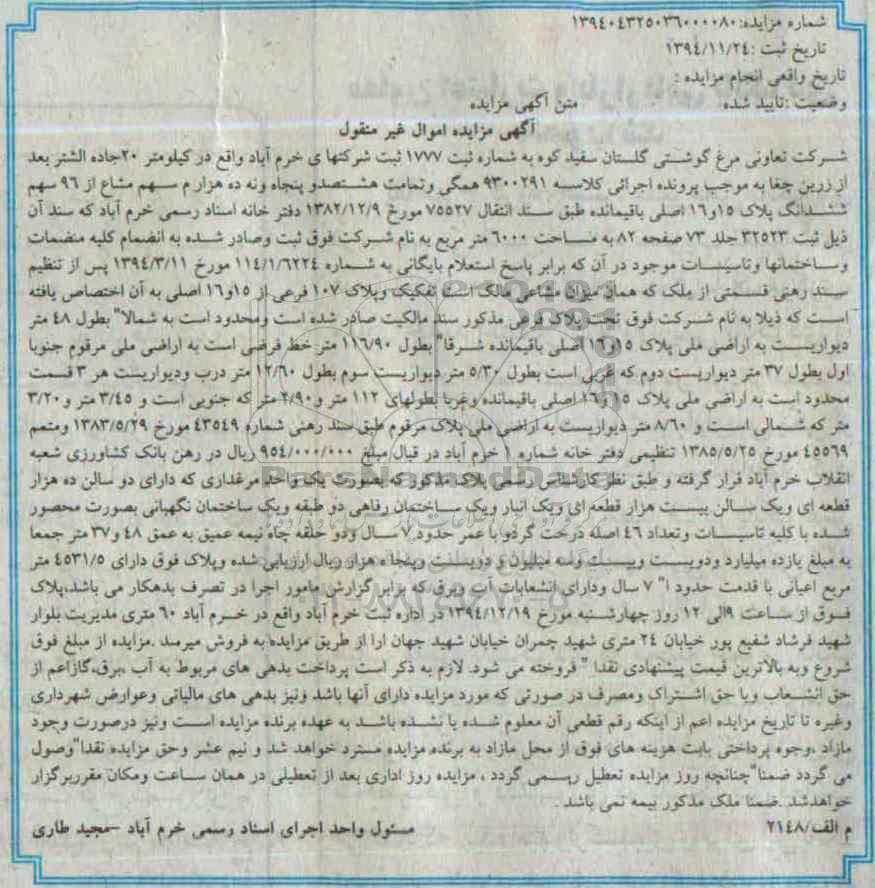 شماره مزایده: ۱۳۹٤۰٤۳۲۵۰۳٦۰۰۰۰۸۰
تاریخ ثبت :۱۳۹٤/۱۱/۲٤
تاریخ واقعی انجام مزایده :
وضعیت :تایید شده متن آگهی مزایده
آگهی مزایده اموال غیر منقول
شرکت تعاونی مرغ گوشتی گلستان سفید کوه به شماره ثبت ۱۷۷۷ ثبت شرکتها ی خرم آباد واقع در کیلومتر ۲۰جاده الشتر بعد
از زرین چغا به موجب پرونده اجرائی کلاسه ۹۳۰۰۲۹۱ همگی وتمامت هشتصدو پنجاه ونه ده هزار م سهم مشاع از ۹٦ سهم
ششدانگ پلاک ۱۵و۱٦ اصلی باقیمانده طبق سند انتقال ۷۵۵۲۷ مورخ ۱۳۸۲/۱۲/۹ دفتر خانه اسناد رسمی خرم آباد که سند آن
ذیل ثبت ۳۲۵۲۳ جلد ۷۳ صفحه ۸۲ به مساحت ٦۰۰۰ متر مربع به نام شرکت فوق ثبت وصادر شده به انضمام کلیه منضمات
وساختمانها وتاسیسات موجود در آن که برابر پاسخ استعلام بایگانی به شماره ۱۱٤/۱/٦۲۲٤ مورخ ۱۳۹٤/۳/۱۱ پس از تنظیم
سند رهنی قسمتی از ملک که همان میزان مشاعی مالک است تفکیک وپلاک ۱۰۷ فرعی از ۱۵و۱٦ اصلی به آن اختصاص یافته
است که ذیلا به نام شرکت فوق تحت پلاک فرعی مذکور سند مالکیت صادر شده است ومحدود است به شمالا" بطول ٤۸ متر
دیواریست به اراضی ملی پلاک ۱۵و۱٦ اصلی باقیمانده شرقا" بطول ۱۱٦/۹۰ متر خط فرضی است به اراضی ملی مرقوم جنوبا
اول بطول ۳۷ متر دیواریست دوم که غربی است بطول ۵/۳۰ متر دیواریست سوم بطول ۱۲/٦۰ متر درب ودیواریست هر ۳ قسمت
محدود است به اراضی ملی پلاک ۱۵و۱٦ اصلی باقیمانده وغربا بطولهای ۱۱۲ متر و۲/۹۰ متر که جنوبی است و ۳/٤۵ متر و ۳/۲۰
متر که شمالی است و ۸/٦۰ متر دیواریست به اراضی ملی پلاک مرقوم طبق سند رهنی شماره ٤۳۵٤۹ مورخ ۱۳۸۳/۵/۲۹ ومتمم
٤۵۵٦۹ مورخ ۱۳۸۵/۵/۲۵ تنظیمی دفتر خانه شماره ۱ خرم آباد در قبال مبلغ ۹۵٤/۰۰۰/۰۰۰ ریال در رهن بانک کشاورزی شعبه
انقلاب خرم آباد قرار گرفته و طبق نظر کارشناس رسمی پلاک مذکور که بصورت یک واحد مرغداری که دارای دو سالن ده هزار
قطعه ای ویک سالن بیست هزار قطعه ای ویک انبار ویک ساختمان رفاهی دو طبقه ویک ساختمان نگهبانی بصورت محصور
شده با کلیه تاسیسات وتعداد ٤٦ اصله درخت گردو با عمر حدود ۷ سال ودو حلقه چاه نیمه عمیق به عمق ٤۸ و۳۷ متر جمعا
به مبلغ یازده میلیارد ودویست وبیست وسه میلیون و دویست وپنجاه هزار ریال ارزیابی شده وپلاک فوق دارای ٤۵۳۱/۵ متر
مربع اعیانی با قدمت حدود ا" ۷ سال ودارای انشعابات آب وبرق که برابر گزارش مامور اجرا در تصرف بدهکار می باشد،پلاک
فوق از ساعت ۹الی ۱۲ روز چهارشنبه مورخ ۱۳۹٤/۱۲/۱۹ در اداره ثبت خرم آباد واقع در خرم آباد ٦۰ متری مدیریت بلوار
شهید فرشاد شفیع پور خیابان ۲٤ متری شهید چمران خیابان شهید جهان ارا از طریق مزایده به فروش میرسد .مزایده از مبلغ فوق
شروع وبه بالاترین قیمت پیشنهادی نقدا " فروخته می شود. لازم به ذکر است پرداخت بدهی های مربوط به آب ،برق،گازاعم از
حق انشعاب ویا حق اشتراک ومصرف در صورتی که مورد مزایده دارای آنها باشد ونیز بدهی های مالیاتی وعوارض شهرداری
وغیره تا تاریخ مزایده اعم از اینکه رقم قطعی آن معلوم شده یا نشده باشد به عهده برنده مزایده است ونیز درصورت وجود
مازاد ،وجوه پرداختی بابت هزینه های فوق از محل مازاد به برنده مزایده مسترد خواهد شد و نیم عشر وحق مزایده نقدا"وصول
می گردد ضمنا"چنانچه روز مزایده تعطیل رسمی گردد ، مزایده روز اداری بعد از تعطیلی در همان ساعت ومکان مقرربرگزار
خواهدشد .ضمنا ملک مذکور بیمه نمی باشد .
م الف/۲۱٤۸ مسئول واحد اجرای اسناد رسمی خرم آباد –مجید طاری